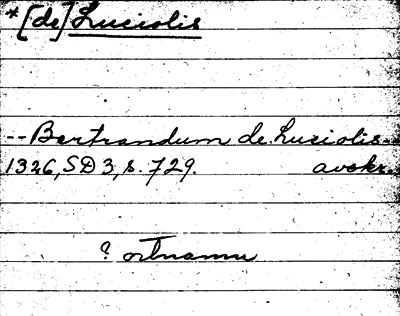 *[de] Luciolis
-- Bertrandum de Luciolis--
1326, SD 3, s. 729. avskr.
? ortnamn